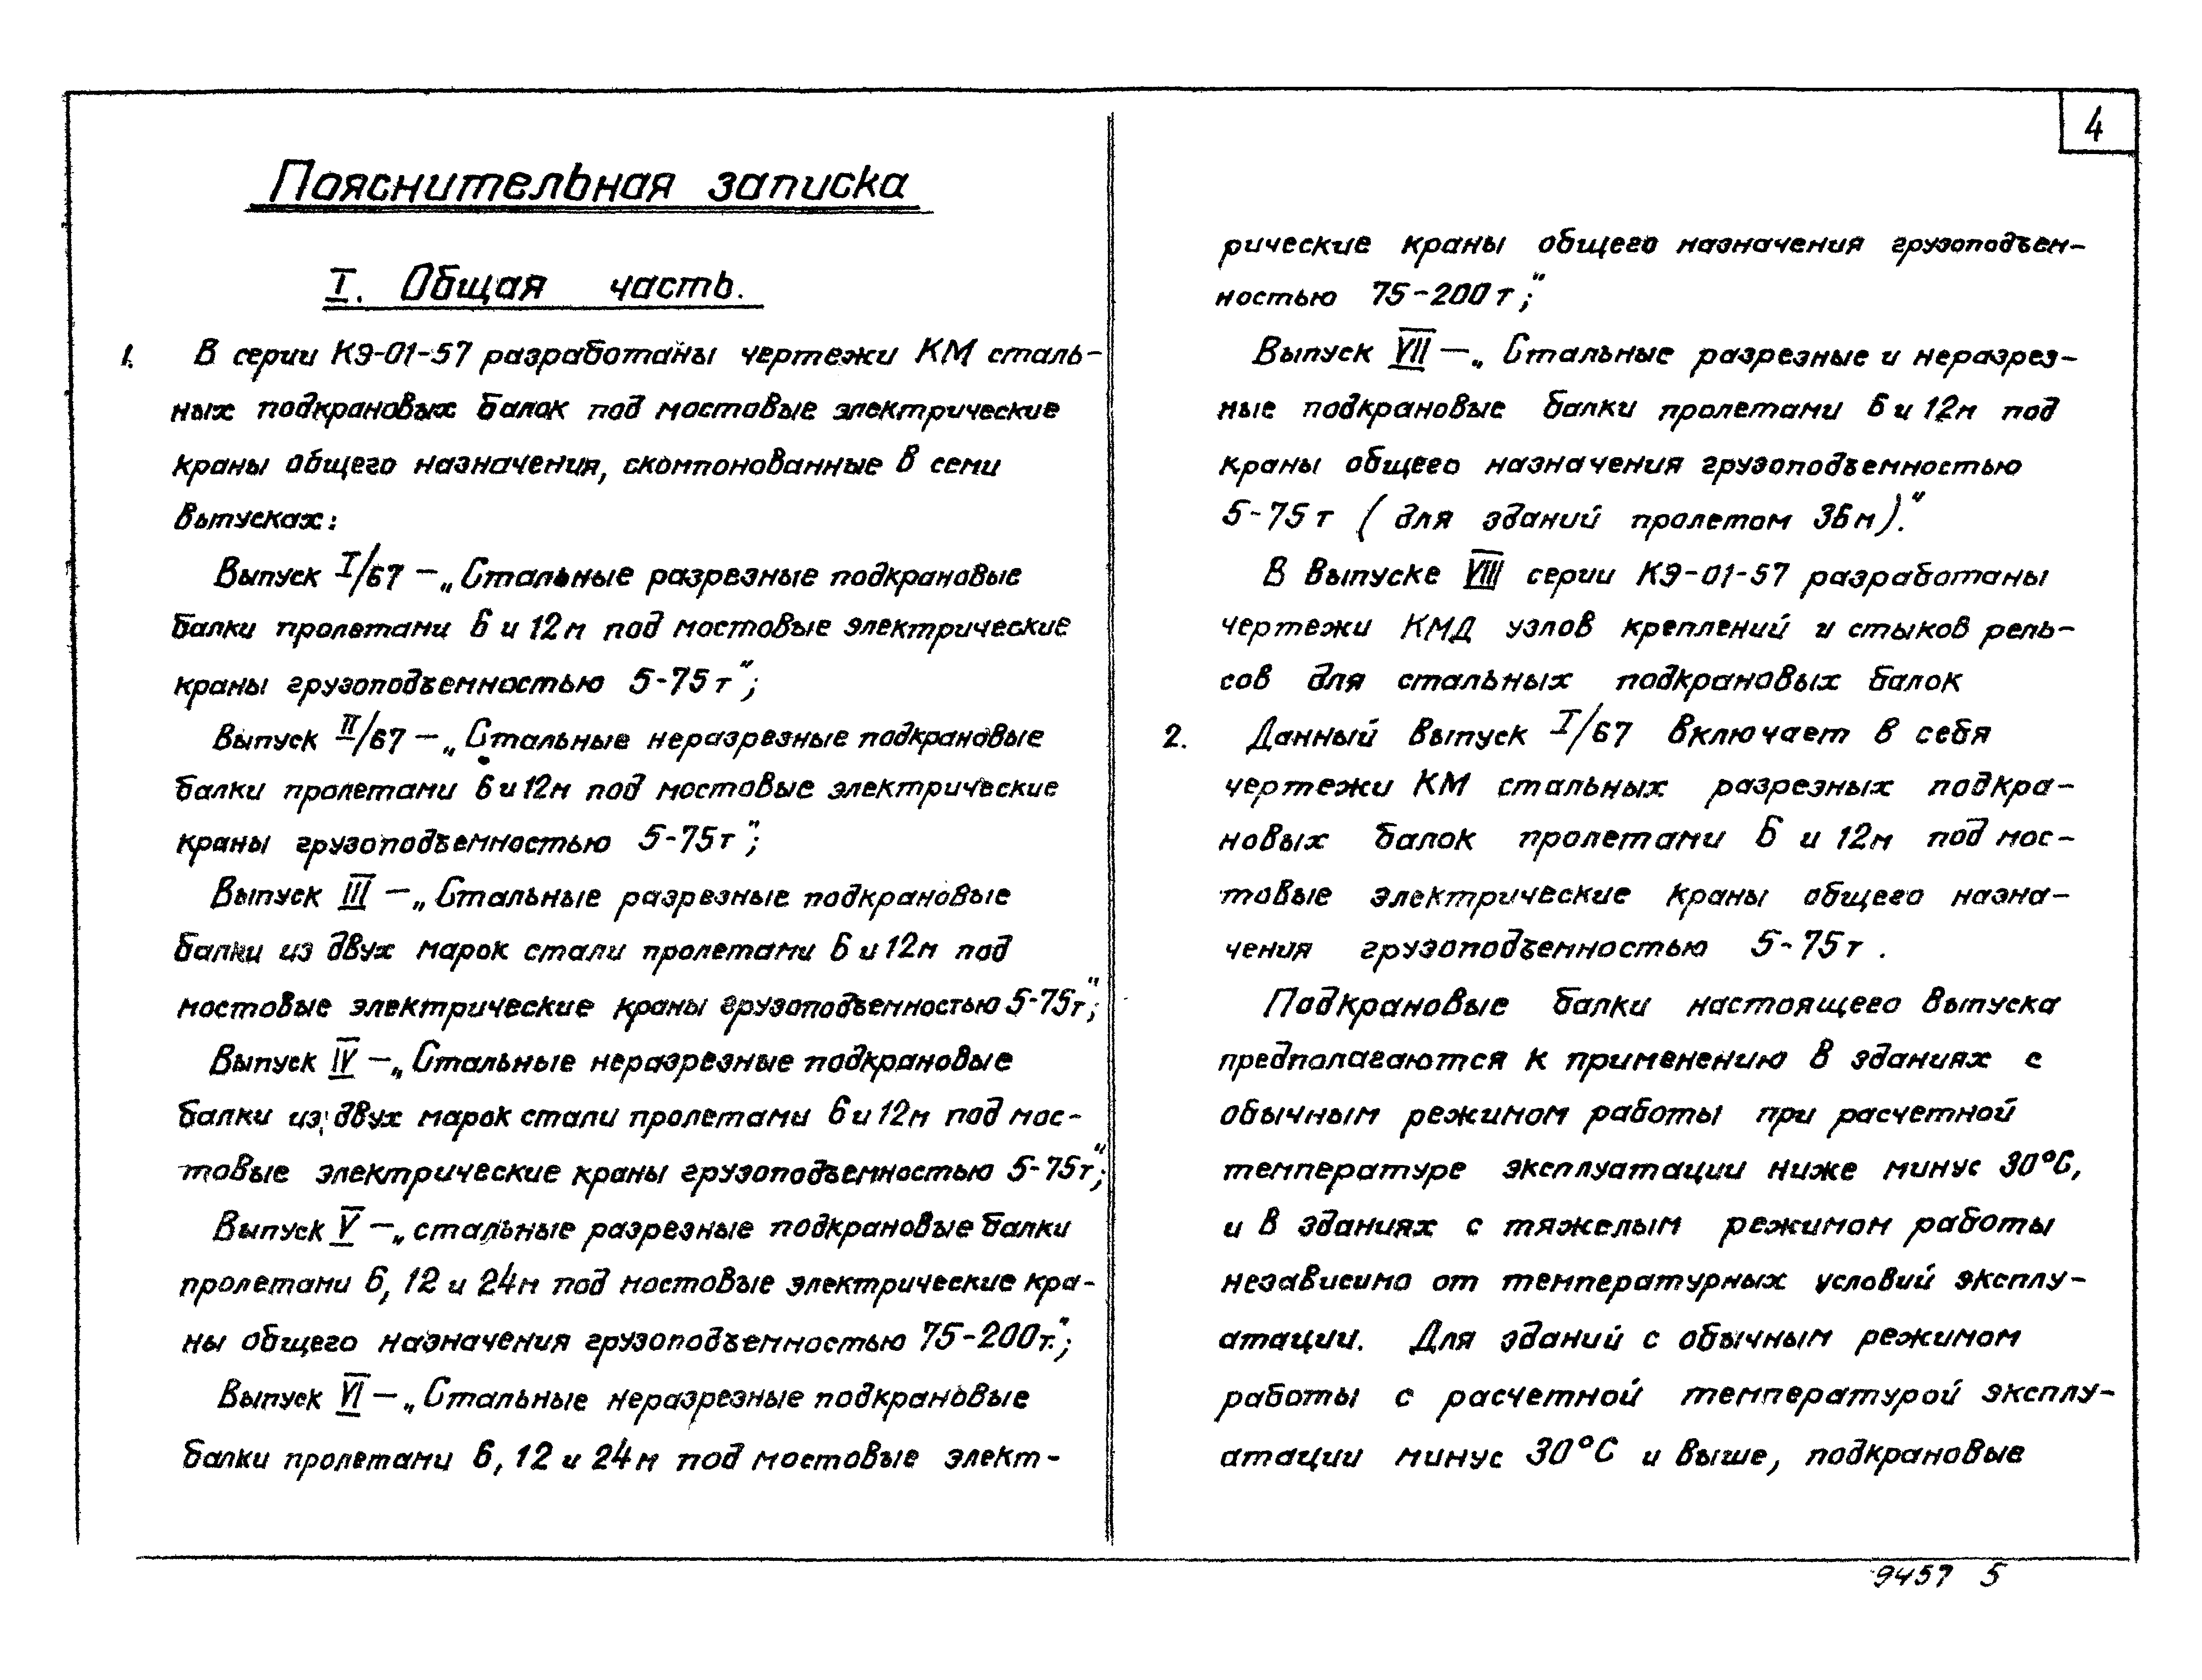 4
Пояснительная записка
I. Общая часть.
1. В серии КЭ-01-57 разработаны чертежи КМ сталь-
ных подкрановых балок под мостовые электрические
краны общего назначения, скомпонованные в семи
выпусках:
Выпуск I/67 – „Стальные разрезные подкрановые
балки пролетами 6 и 12м под мостовые электрические
краны грузоподъемностью 5-75т";
Выпуск II/67 – „Стальные неразрезные подкрановые
балки пролетами 6 и 12м под мостовые электрические
краны грузоподъемностью 5-75т";
Выпуск III – „Стальные разрезные подкрановые
балки из двух марок стали пролетами 6 и 12м под
мостовые электрические краны грузоподъемностью 5-75т";
Выпуск IV – „Стальные неразрезные подкрановые
балки из двух марок стали пролетами 6 и 12м под мос-
товые электрические краны грузоподъемностью 5-75т";
Выпуск V – „стальные разрезные подкрановые балки
пролетами 6, 12 и 24м под мостовые электрические кра-
ны общего назначения грузоподъемностью 75-200т.";
Выпуск VI – „Стальные неразрезные подкрановые
балки пролетами 6, 12 и 24м под мостовые элект-
рические краны общего назначения грузоподъем-
ностью 75-200т";
Выпуск VII – „Стальные разрезные и неразрез-
ные подкрановые балки пролетами 6 и 12м под
краны общего назначения грузоподъемностью
5-75т (для зданий пролетом 36м)."
В выпуске VIII серии КЭ-01-57 разработаны
чертежи КМД узлов креплений и стыков рель-
сов для стальных подкрановых балок
2. Данный выпуск I/67 включает в себя
чертежи КМ стальных разрезных подкра-
новых балок пролетами 6 и 12м под мос-
товые электрические краны общего назна-
чения грузоподъемностью 5-75т.
Подкрановые балки настоящего выпуска
предполагаются к применению в зданиях с
обычным режимом работы при расчетной
температуре эксплуатации ниже минус 30°С,
и в зданиях с тяжелым режимом работы
независимо от температурных условий эксплу-
атации. Для зданий с обычным режимом
работы с расчетной температурой эксплу-
атации минус 30°С и выше, подкрановые
9457 5